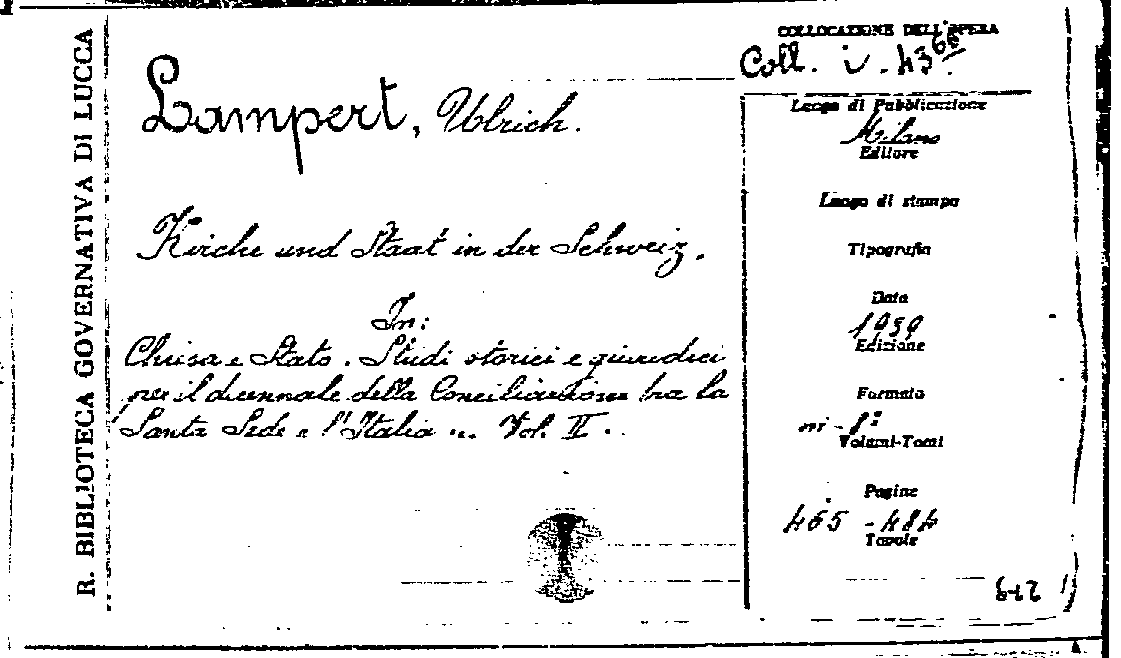 R. BIBLIOTECA GOVERNATIVA DI LUCCA
Lampert, Ulrich.
Kirche und Staat in der Schweiz.
In:
Chiesa e Stato. Studi storici e giuridici
per il decennale della Conciliazione tra la
Santa Sede e l'Italia". Vol. II.
COLLOCAZIONE DELL'OPERA
Coll. i. 43
Luogo di Pubblicazione
Milano
Editore
Luogo di stampa
Tipografia
Data
1939
Edizione
Formato
in-8º
Volumi-Tomi
Pagine
465-484
Tavole